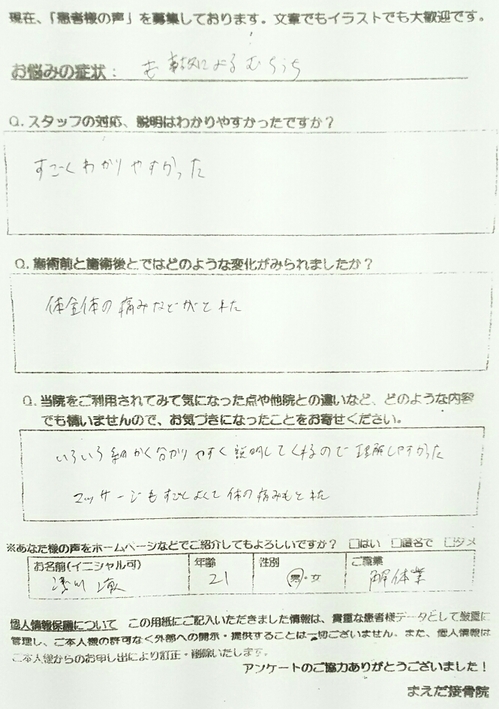 現在、「患者様の声」を募集しております。文章でもイラストでも大歓迎です。
お悩みの症状： 事故によるむちうち
Q. スタッフの対応、説明はわかりやすかったですか？
すごくわかりやすかった
Q. 施術前と施術後とではどのような変化がみられましたか？
体全体の痛みなどがとれた
Q. 当院をご利用されてみて気になった点や他院との違いなど、どのような内容
でも構いませんので、お気づきになったことをお寄せください。
いろいろ細かく分かりやすく説明してくれるので理解しやすかった
マッサージもすごくよくて体の痛みもとれた
※あなた様の声をホームページなどでご紹介してもよろしいですか？ □はい □匿名で □ダメ
お名前(イニシャル可) 年齢 性別 ご職業
21 男・女 解体業
個人情報保護について この用紙にご記入いただきました情報は、貴重な患者様データとして厳重に
管理し、ご本人様の許可なく外部への開示・提供することは一切ございません。また、個人情報は
ご本人様からのお申し出により訂正・削除いたします。
アンケートのご協力ありがとうございました！
まえだ接骨院